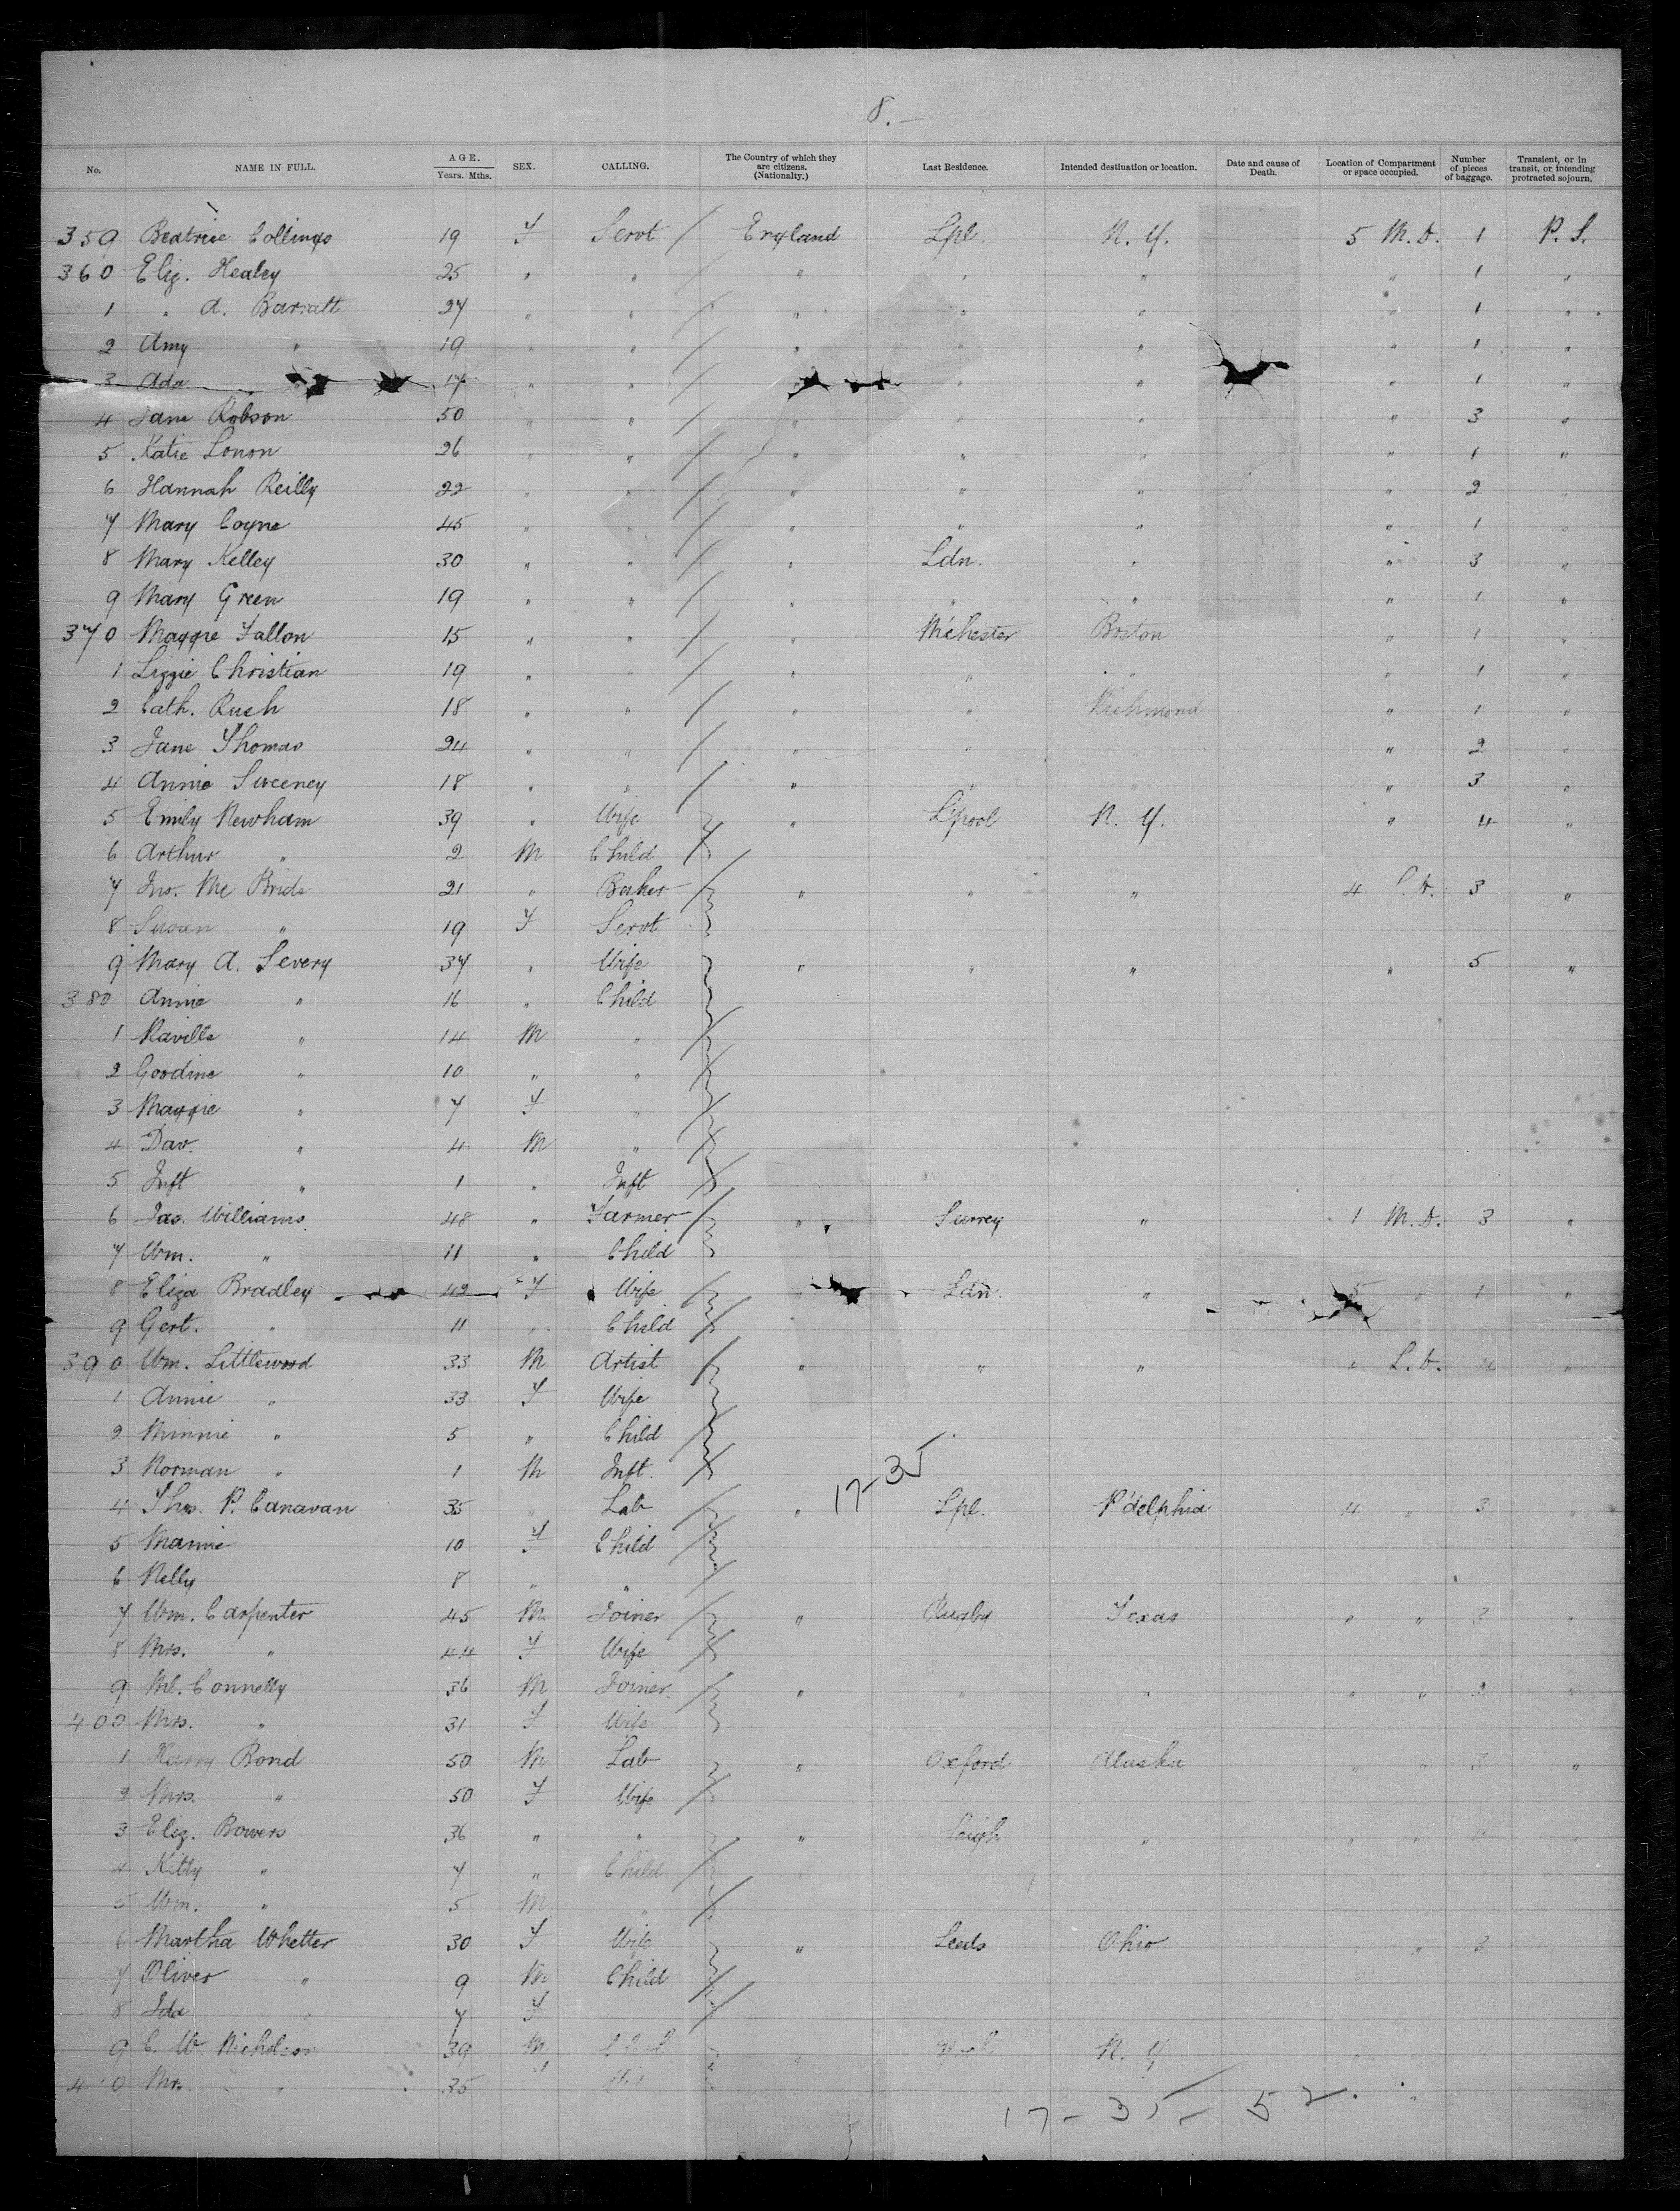 8.-
No. NAME IN FULL. AGE. Years. Mths. SEX. CALLING. The Country of which they are citizens. (Nationalty.) Last Residence. Intended destination or location. Date and cause of Death. Location of Compartment or space occupied. Number of pieces of baggage. Transient, or in transit, or intending protracted sojourn.
359 Beatrice Collings 19 F Servt / England Lpl. N. Y. 5 M.D. 1 P.S.
360 Eliz. Healey 25 " " / " " " " 1 "
1 " A. Barratt 27 " " / " " " " 1 "
2 Amy " 19 " " / " " " " 1 "
3 Ada 17 " " / " " " 1 "
4 Jane Robson 50 " " / " " " " 3 "
5 Katie Lonon 26 " " / " " " " 1 "
6 Hannah Reilly 22 " " / " " " " 2 "
7 Mary Coyne 45 " " / " " " " 1 "
8 Mary Kelley 30 " " / " Ldn. " " 3 "
9 Mary Green 19 " " / " " " " 1 "
370 Maggie Fallon 15 " " / " M'chester Boston " 1 "
1 Lizzie Christian 19 " " / " " " " 1 "
2 Cath. Rush 18 " " / " " Richmond " 1 "
3 Jane Thomas 24 " " / " " " " 2 "
4 Annie Sweeney 18 " " / " " " " 3 "
5 Emily Newham 39 " Wife " L'pool N. Y. " 4 "
6 Arthur " 2 M Child /
7 Jno. Mc Bride 21 " Baker / " " " 4 S.D. 3 "
8 Susan " 19 F Servt
9 Mary A. Severy 37 " Wife " " " " 5 "
380 Annie " 16 " Child
1 " 14 M " /
2 Goodine " 10 " " /
3 Maggie " 7 F " /
4 Dav. " 4 M " /
5 Inft " 1 " Inft /
6 Jas. Williams. 48 " Farmer / " Surrey " 1 M.D. 3 "
7 Wm. " 11 " Child
8 Eliza Bradley 42 F Wife / " Ldn. " 5 " 1 "
9 Gert. " 11 " Child /
390 Wm. Littlewood 33 M Artist / " " " " S.D. 4 "
1 Annie " 33 F Wife
2 Minnie " 5 " Child /
3 Norman " 1 M Inft. /
17-35
4 Thos. P. Canavan 35 " Lab / " Lpl. P'delphia 4 " 3 "
5 Mamie 10 F Child /
6 Nelly 8 " " /
7 Wm. Carpenter 45 M Joiner / " Rugby Texas " " 3 "
8 Mrs. " 44 F Wife /
9 Ml. Connelly 36 M Joiner. / " " " " " 2 "
400 Mrs. " 31 F Wife
1 Harry Bond 50 M Lab " Oxford Alaska " " 3 "
2 Mrs. " 50 F Wife /
3 Eliz. Bowers 36 " " " Leigh " " " 4 "
4 Kitty " 7 " Child /
5 Wm. " 5 M " /
6 Martha Whetter 30 F Wife " Leeds Ohio " " 3
7 Oliver " 9 M Child /
8 Ida " 7 F /
9 C. W. Nicholson 39 M " N. Y. 4
410 Mrs. " 35 F
17-35-52